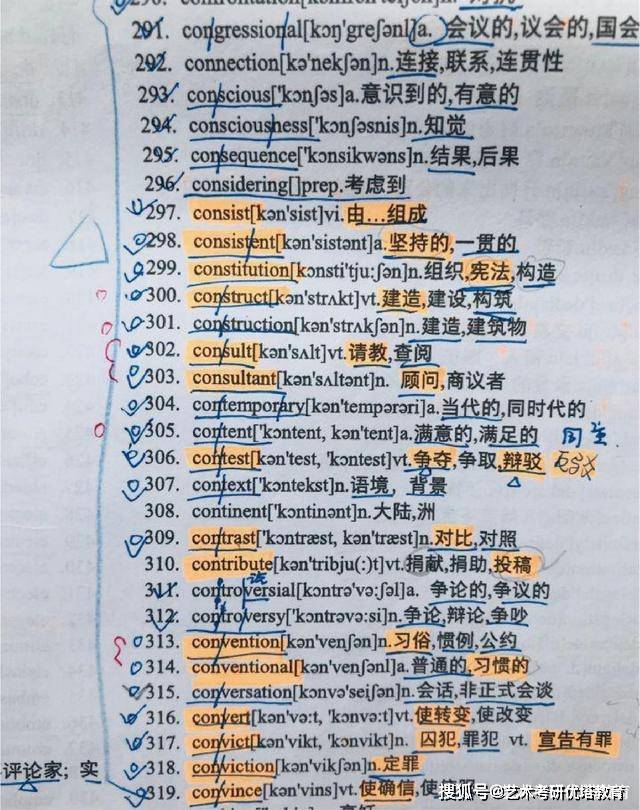 291. congressional[kɔŋ'greʃənl]a. 会议的,议会的,国会
292. connection[kə'nekʃən]n.连接,联系,连贯性
293. conscious['kɔnʃəs]a.意识到的,有意的
294. consciousness['kɔnʃəsnis]n.知觉
295. consequence['kɔnsikwəns]n.结果,后果
296. considering[]prep.考虑到
297. consist[kən'sist]vi.由…组成
298. consistent[kən'sistənt]a.坚持的,一贯的
299. constitution[kɔnsti'tju:ʃən]n.组织,宪法,构造
300. construct[kən'strʌkt]vt.建造,建设,构筑
301. construction[kən'strʌkʃən]n.建造,建筑物
302. consult[kən'sʌlt]vt.请教,查阅
303. consultant[kən'sʌltənt]n. 顾问,商议者
304. contemporary[kən'tempərəri]a.当代的,同时代的
305. content['kɔntent, kən'tent]a.满意的,满足的
306. contest[kən'test, 'kɔntest]vt.争夺,争取,辩驳
307. context['kɔntekst]n.语境, 背景
308. continent['kɔntinənt]n.大陆,洲
309. contrast['kɔntræst, kən'træst]n.对比,对照
310. contribute[kən'tribju(:)t]vt.捐献,捐助,投稿
311. controversial[kɔntrə'və:ʃəl]a. 争论的,争议的
312. controversy['kɔntrəvə:si]n.争论,辩论,争吵
313. convention[kən'venʃən]n.习俗,惯例,公约
314. conventional[kən'venʃənl]a.普通的,习惯的
315. conversation[kɔnvə'seiʃən]n.会话,非正式会谈
316. convert[kən'və:t, 'kɔnvə:t]vt.使转变,使改变
317. convict['kɔnvikt, kən'vikt]n. 囚犯,罪犯 vt. 宣告有罪
318. conviction[kən'vikʃən]n.定罪
评论家; 实
319. convince[kən'vins]vt.使确信,使
搜狐号@艺术考研优培教育